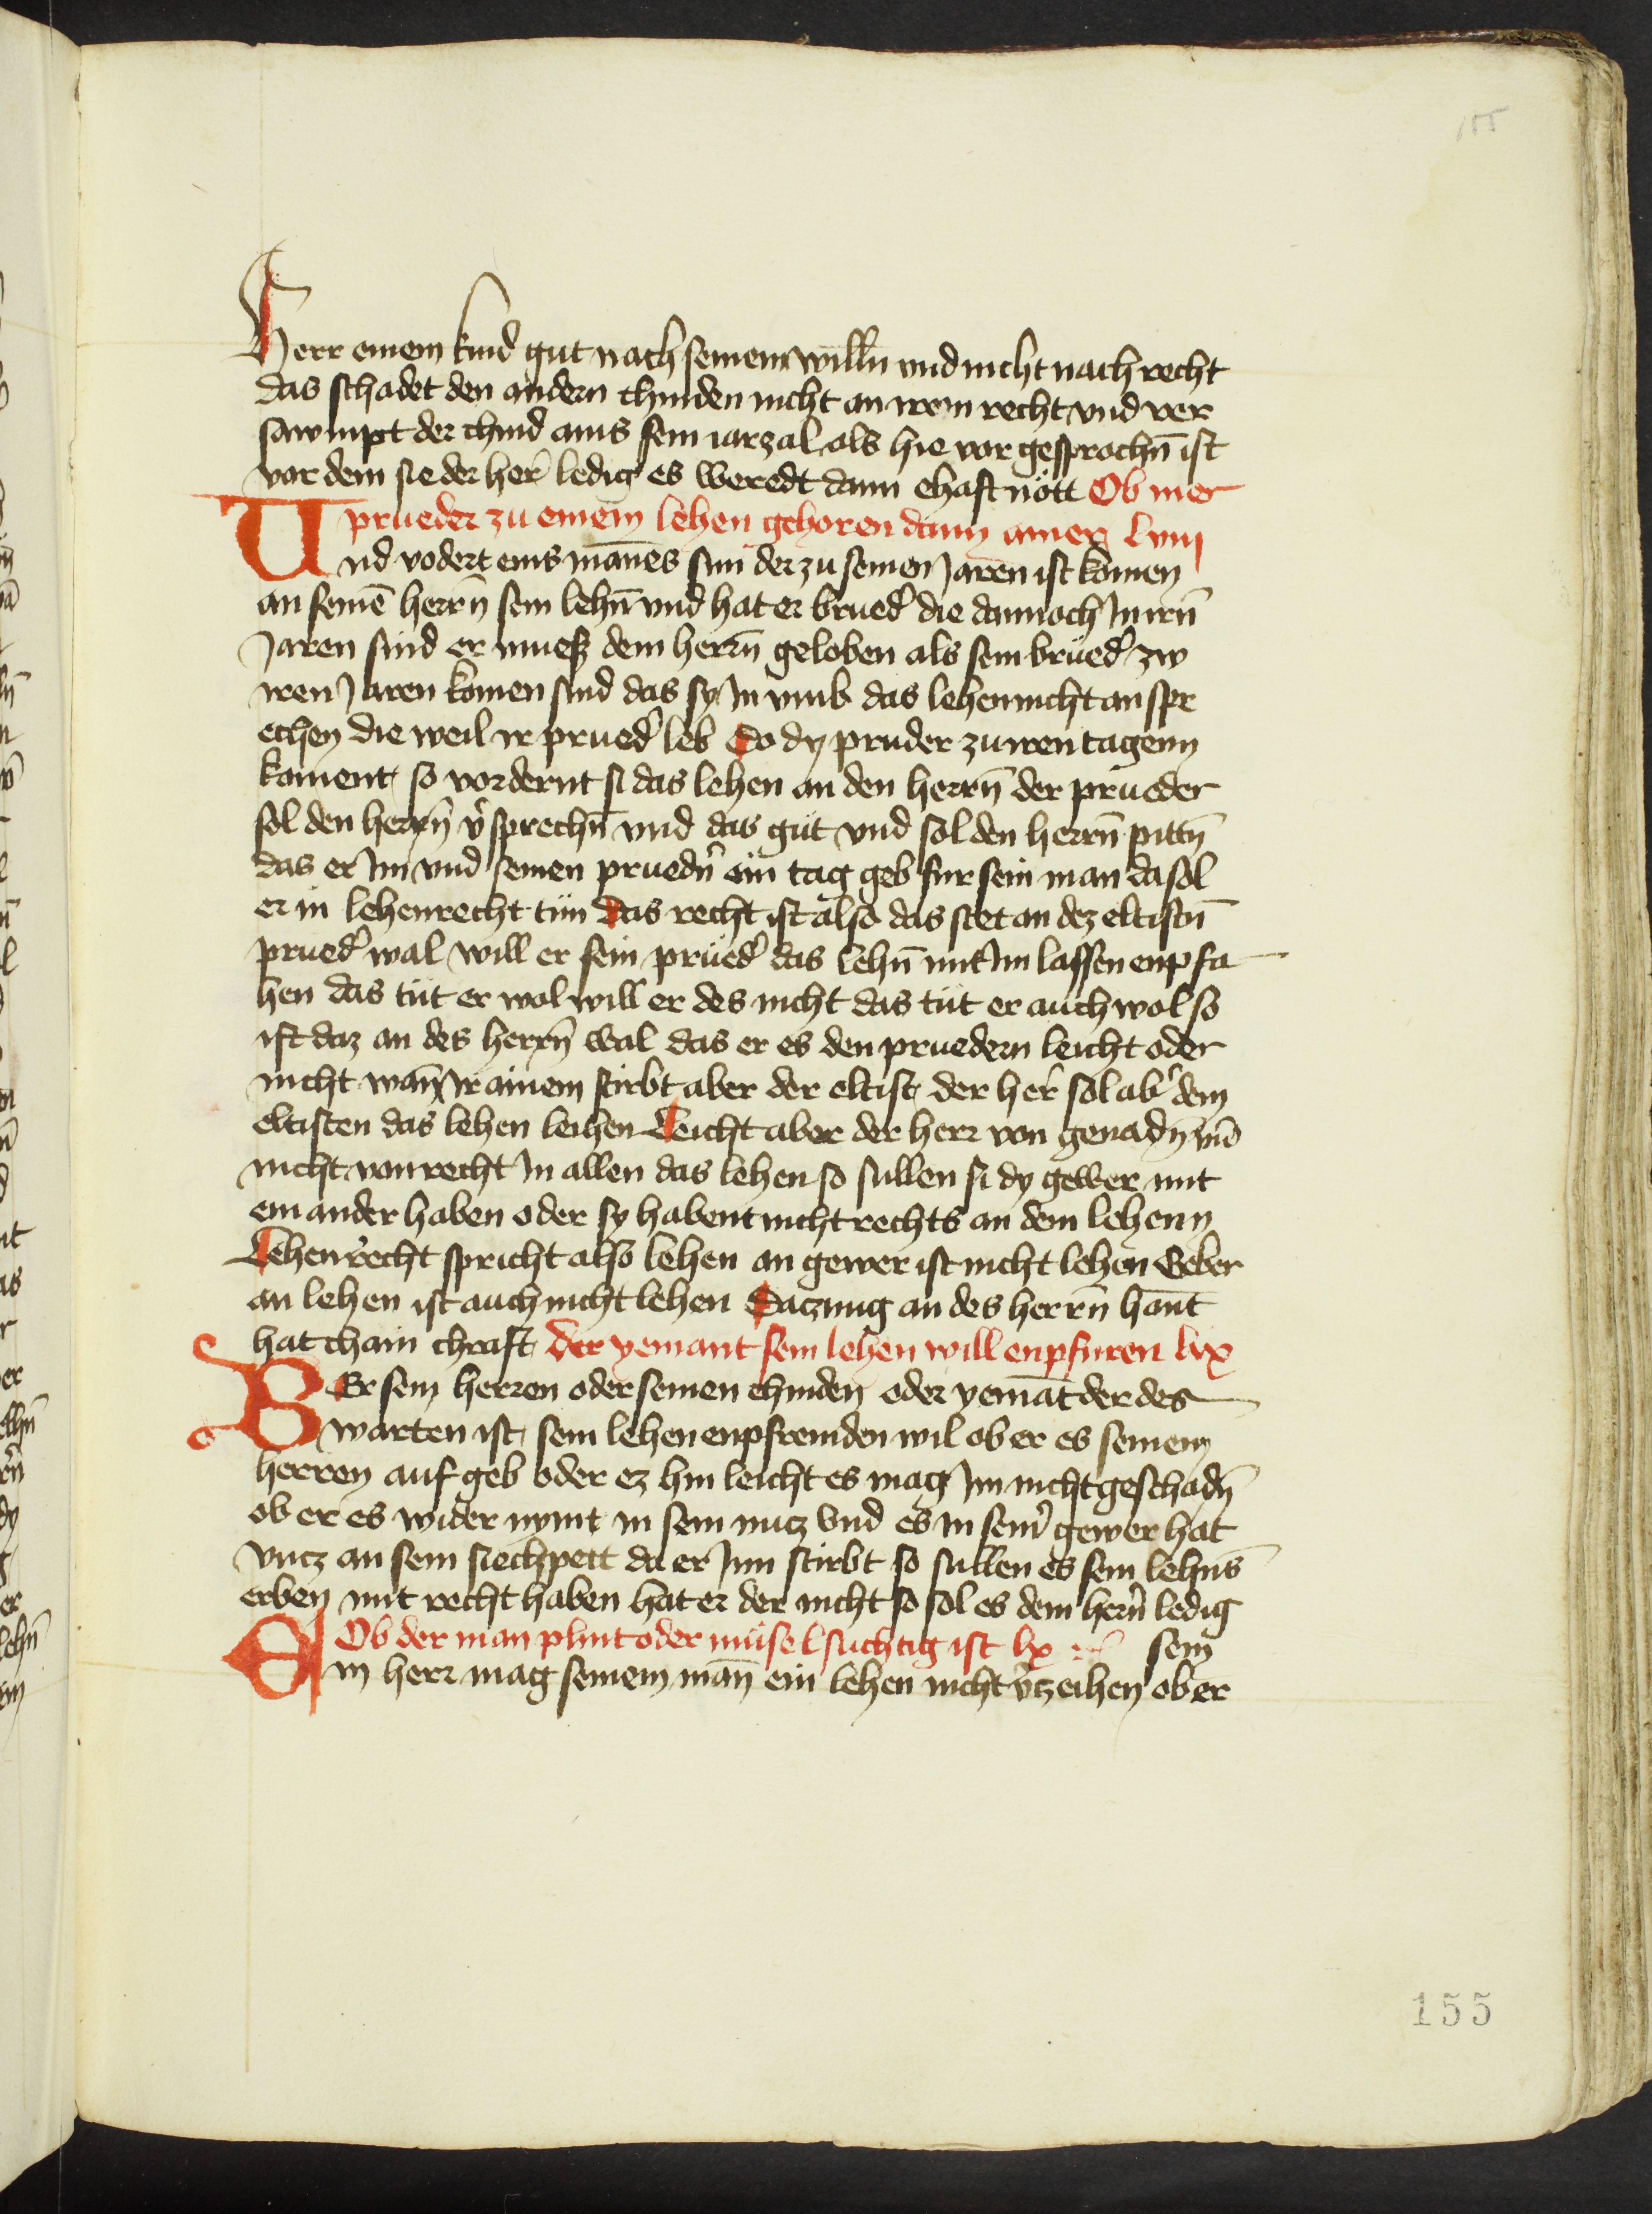 155
Herr einem kind gut nach seinem willn̄ vnd nicht nach recht
das schadet den andern chinden nicht an irem recht vnd ver
sawmpt der chind ains sein iarzal als hie vor gesprochn̄ ist
vor dem sie der her̄ ledig es weredt dann ehaft nött Ob mer
prueder zu einem lehen gehoren dann ainer lviij
Und vodert eins mānes sun der zu seinen Jaren ist komen
an seinē herrn̄ sein lehn̄ vnd hat er brued̉ die dannoch Jn irn̄
Jaren sind er muesz dem herrn̄ geloben als sein brued̉ zw
iren Jaren komen sind das sy Jn vmb das lehen nicht an spr
echen die weil ir prued̉ leb So dy pruder zu iren tagenn
koment so vordernt si das lehen an den herrn̄ der prueder
sol den herrn̄ v̉sprechn̄ vnd das gut vnd sol den herrn̄ pittn̄
das er Jm vnd seinen pruedn̉ ein tag geb fur sein man da sol
er in lehenrecht tun Das recht ist also das stet an dez eltistn̄
prued̉ wal will er sein prued̉ das lehn̄ mit Jm lassen enpfa
hen das tut er wol will er des nicht das tut er auch wol so
ist daz an des herrn̄ wal das er es den pruedern leicht oder
nicht wan̄ Jr ainem stirbt aber der eltist der her̄ sol ab̉ dem
eltisten das lehen leihen Leicht aber der herr von genadn̄ vnd
nicht von recht Jn allen das lehen so sullen si dy gewer mit
ein ander haben oder sy habent nicht rechts an dem lehenn
Lehenrecht spricht also lehen an gewer ist nicht lehen Geber
an lehen ist auch nicht lehen Saczung an des herrn̄ hant
hat chain chraft der yemant sein lehen will enpfuren lix
WEr sein herren oder seinen chinden oder yemāt der des
warten ist sein lehen enpfremden wil ob er es seinem
herren auf geb oder ez hin leicht es mag Jm nicht geschadn̄
ob er es wider nymt in sein nucz vnd es in sein̉ gewer hat
vncz an sein siechpett da er Jnn stirbt so sullen es sein lehns̄
erben mit recht haben hat er der nicht so sol es dem hern̄ ledig
Ob der man plint oder müselsuchtig ist lx sein
Ein herr mag seinem man̄ ein lehen nicht v̉zeihen ob er
155